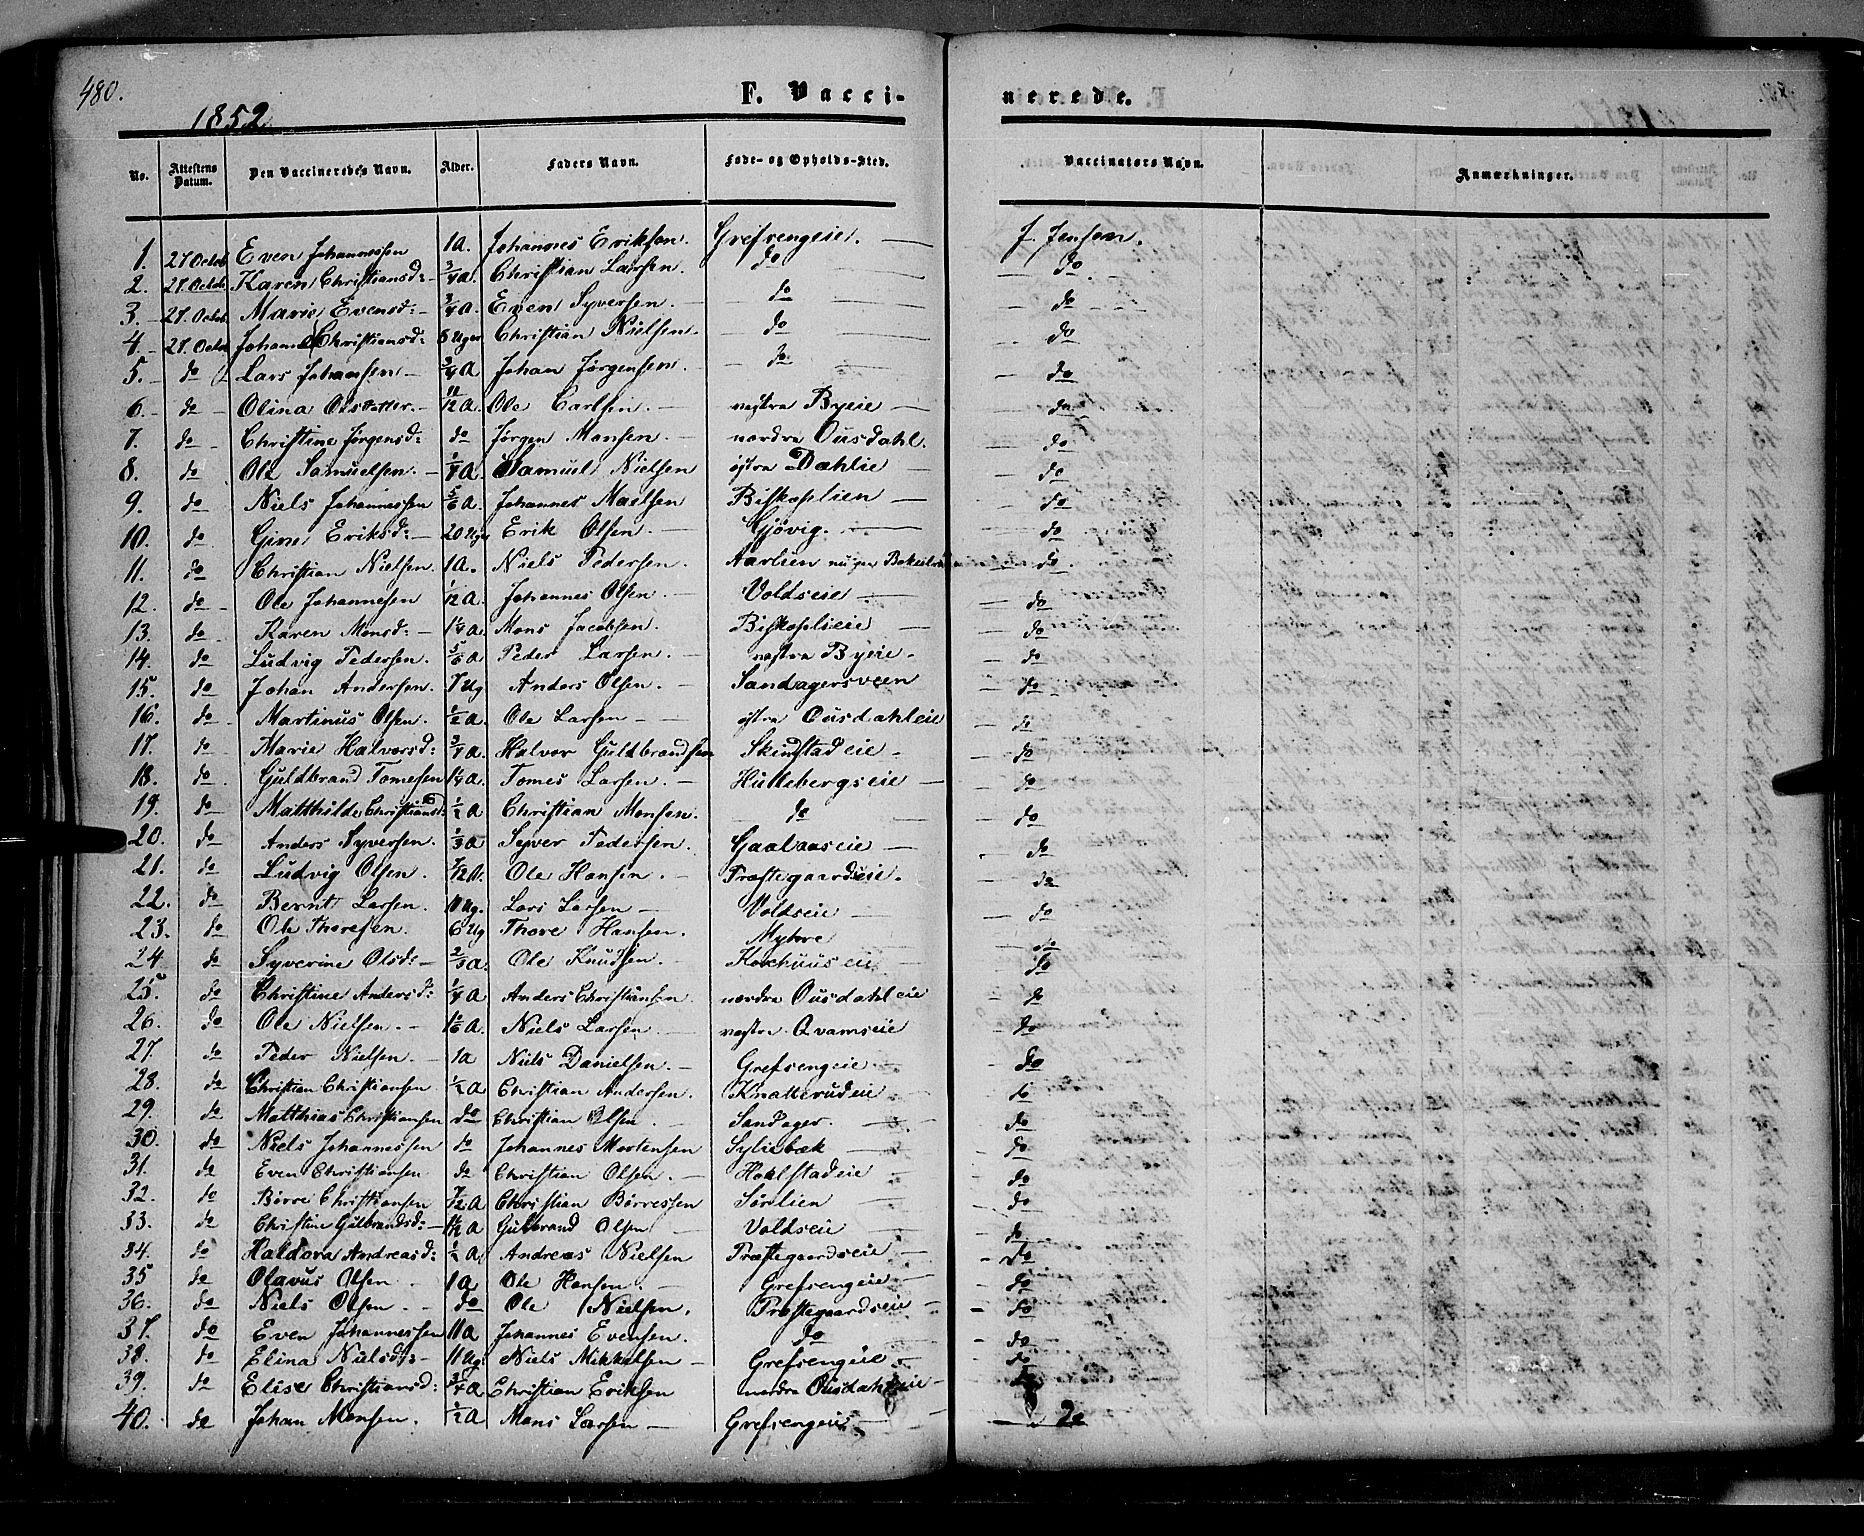 480.
1852
F. Vacci-
nerede.
No. Attestens Datum. Den Vaccineredes Navn. Alder. Faders Navn. Føde- og Opholds-Sted. Vaccinators Navn. Anmærkninger.
1. 27 Octob Even Johannessen 1 A. Johannes Eriksen. Grefsengeie. J. Jensen.
2. 27. Octob Karen Christiansd: 3/4 A. Christian Larsen. do do
3. 27. Octob Marie Evensd: 3/4 A. Even Syversen. do do
4. 27. Octob Johanne Christiansd: 8 Uger Christian Nielsen. do do
5. do Lars Johansen 3/4 A Johan Jørgensen. do do
6. do Olina Olsdatter. 11/12 A. Ole Carlsen. vestra Byeie do
7. do Christine Jørgensd: do Jørgen Monsen. nordra Ousdahl. do
8. do Ole Samuelsen. A. Samuel Nielsen østra Dahlie do
9. do Niels Johannessen 5/6 A. Johannes Maelsen Biskoplien do
10. do Gine Eriksd: 20 Uger Erik Olsen. Gjøvig. do
11. do Christian Nielsen. 1 A. Niels Pedersen. Aarlien do
12. do Ole Johannesen 1/12 A. Johannes Olsen. Voldseie do
13. do Karen Monsd: 1 1/4 A. Mons Jacobsen. Biskoplieie do
14. do Ludvig Pedersen. 5/6 A Peder Larsen. vestra Byeie. do
15. do Johan Andersen. 7 Ug Anders Olsen. Sandagersveen do
16. do Martinus Olsen. 1/2 A. Ole Larsen østra Ousdahleie do
17. do Marie Halvorsd: 3/4 A. Halvor Guldbrandsen Skinstadeie. do
18. do Guldbrand Tomesen 1 1/4 A. Tomes Larsen. Hullebergseie do
19. do Matthilde Christiansd: 1/2 A Christian Monsen. do do
20. do Anders Syversen. 1/3 A Syver Pedersen. Gaalaaseie do
21. do Ludvig Olsen. 7/12 A. Ole Hansen. Præstegaardseie. do
22. do Bernt Larsen. 10 Ug. Lars Larsen Voldseie do
23. do Ole Thoresen. 6 Ug Thore Hansen. Myhre do
24 do Syverine Olsd: 2/3 A. Ole Knudsen. do
25. do Christine Andersd: 1/4 A Anders Christiansen nordra Ousdahleie do
26. do Ole Nielsen. 1 1/6 A. Niels Larsen. vestra Qvamseie do
27. do Peder Nielsen. 1 A Niels Danielsen. Grefsengeie do
28. do Christian Christiansen 1/2 A Christian Andersen. Knatterudeie do
29. do Matthias Christiansen do Christian Olsen Sandager. do
30. do Niels Johannessen do Johannes Mortensen Syliebæk do
31. do Even Christiansen do Christian Olsen. Hoelstadeie do
32. do Børre Christiansen 7/12 A Christian Børressen Sørlien do
33. do Christine Gulbrandsd: A Gulbrand Olsen Voldseie do
34. do Haldora Andreasd: 1/2 A Andreas Nielsen Præstegaardseie do
35 do Olavus Olsen. 1 A Ole Hansen. Grefsengeie do
36. do Niels Olsen. do Ole Nielsen. Præstegaardseie do
37. do Even Johannessen 11 A Johannes Evensen. do do
38. do Elina Nielsd: 11 Ug. Niels Mikkelsen Grefsengeie do
39. do Elise Christiansd: 3/4 A Christian Eriksen nordra Ousdahleie do
40. do Johan Monsen. 1/2 A Mons Larsen Grefsengeie do